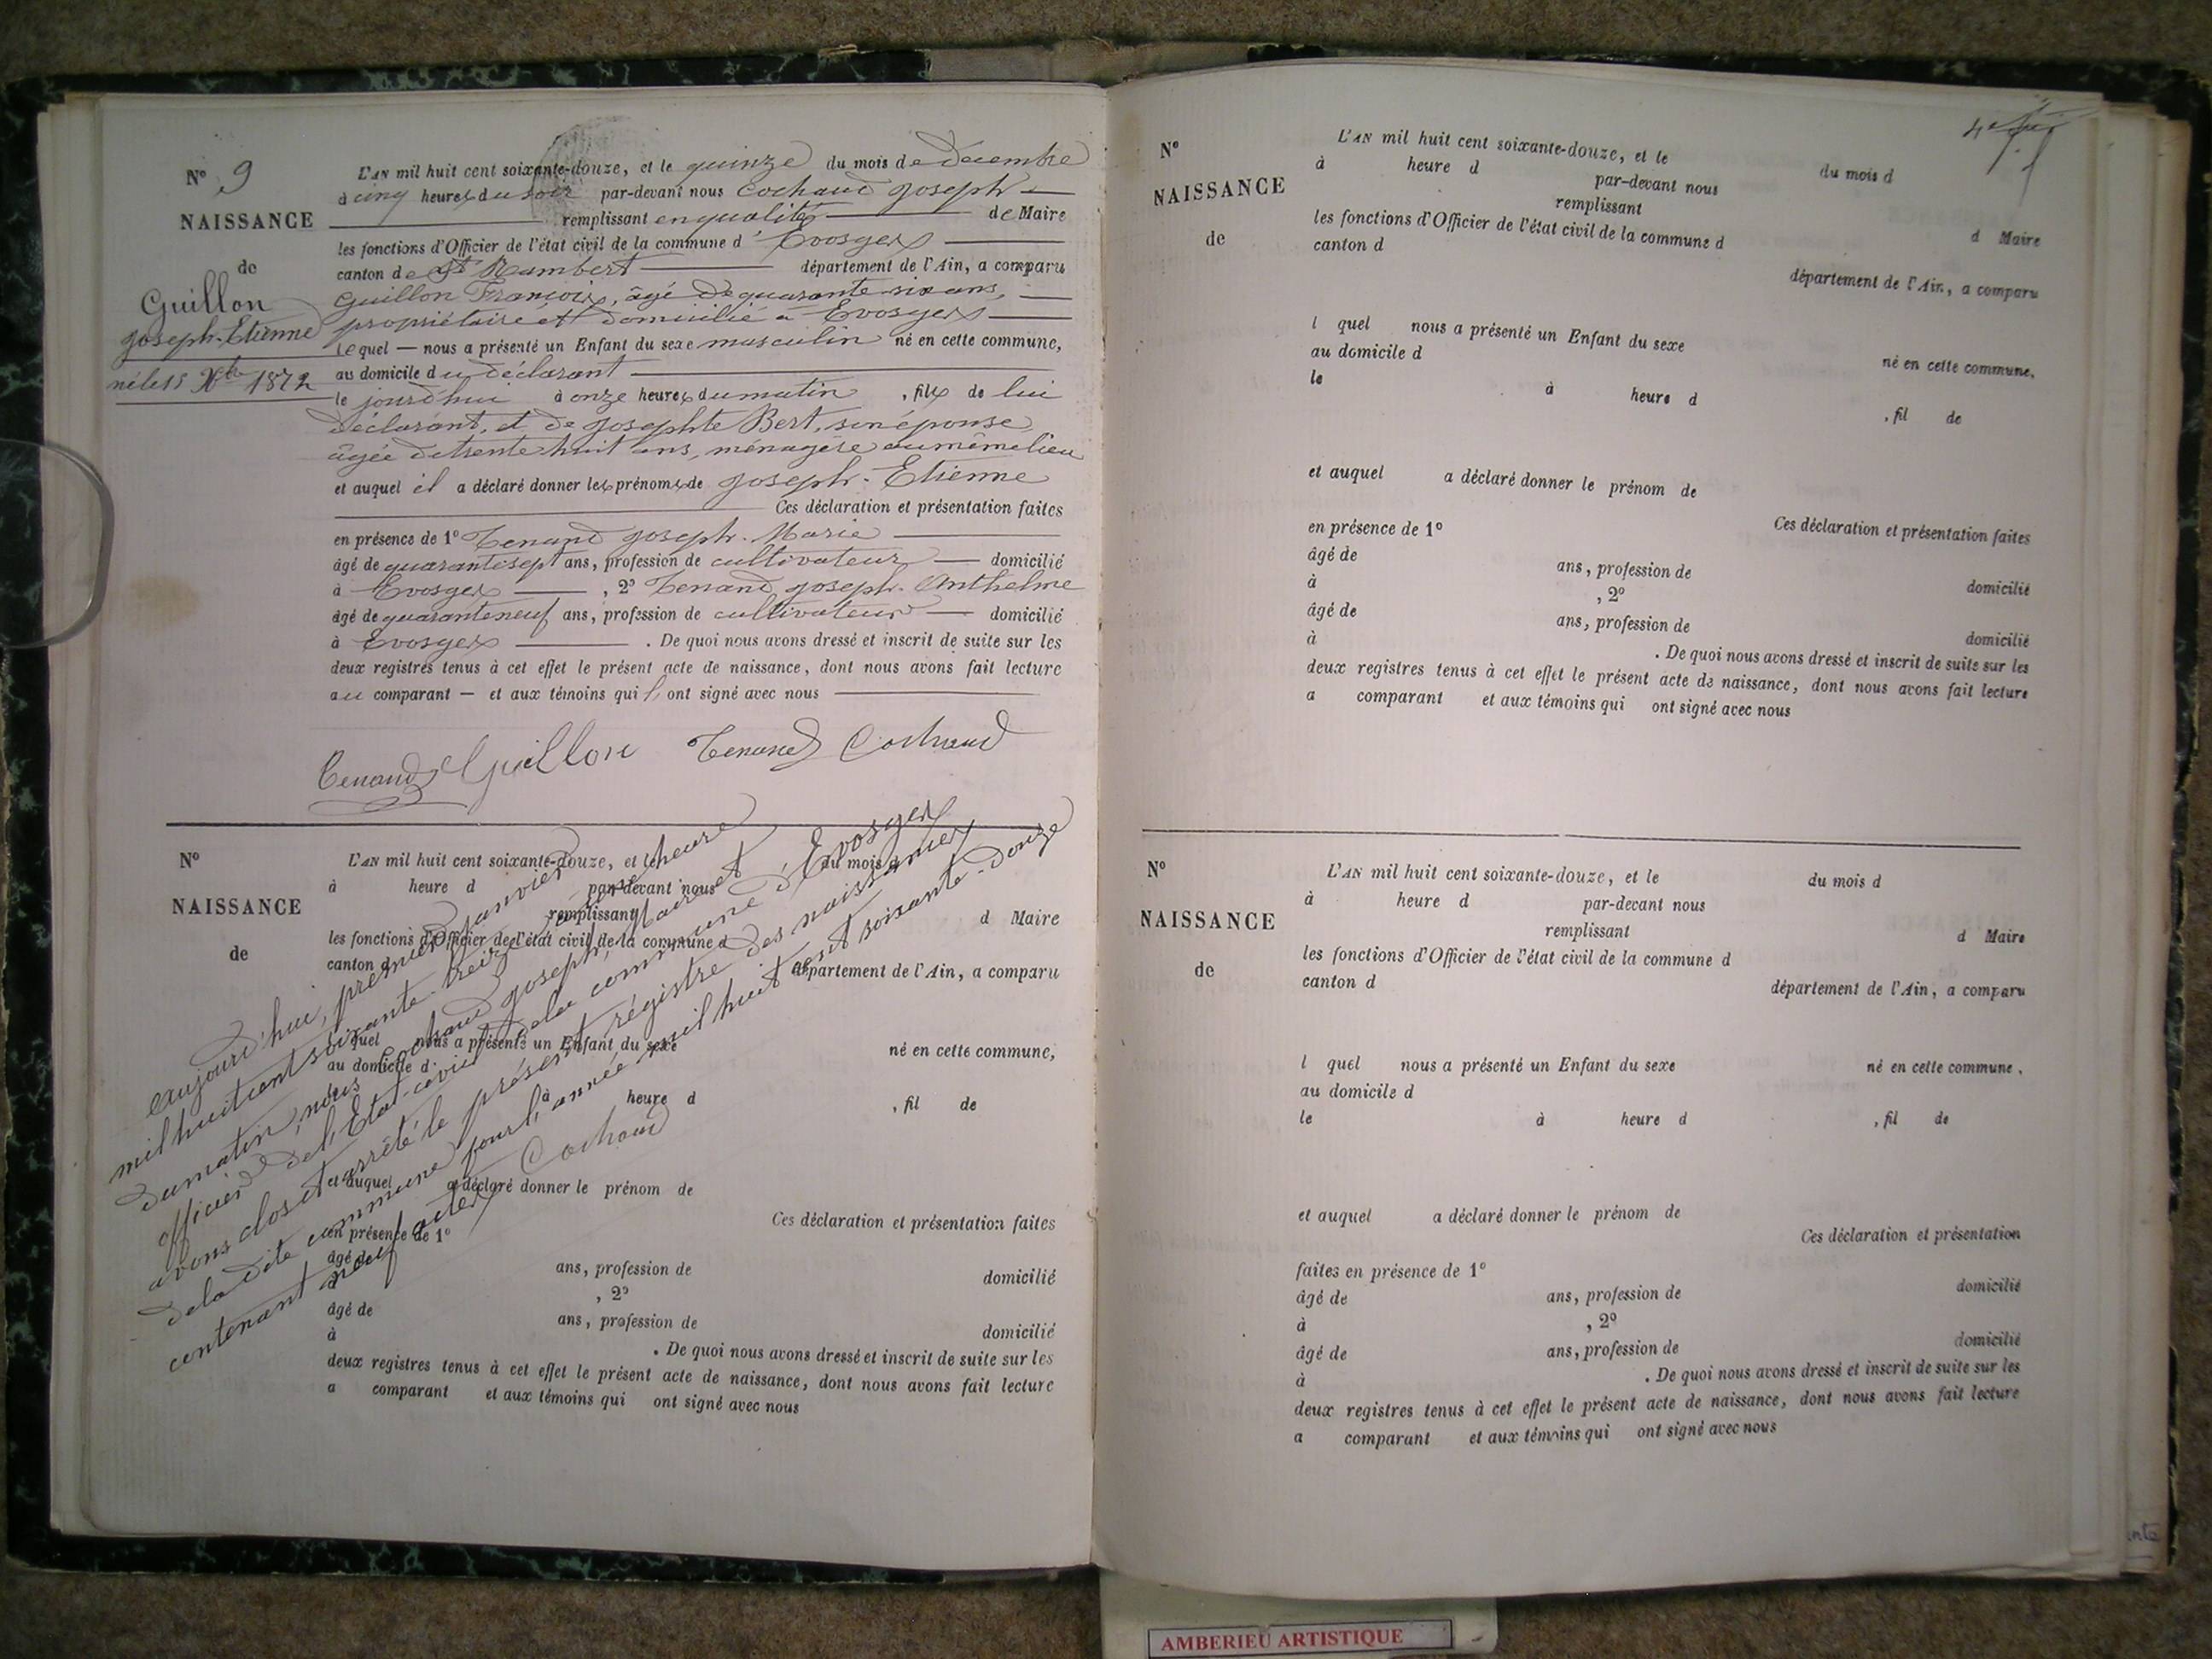 N° 9
NAISSANCE
de
Guillon
Joseph-Etienne
né le 15 Xbre 1872
L'AN mil huit cent soixante-douze, et le quinze du mois de décembre
à cinq heures du soir par-devant nous Cochaud Joseph
remplissant en qualité de Maire
les fonctions d'Officier de l'état civil de la commune d'Evosges
canton de St Rambert département de l'Ain, a comparu
Guillon François, âgé de quarante six ans,
propriétaire et domicilié à Evosges
lequel — nous a présenté un Enfant du sexe masculin né en cette commune,
au domicile du déclarant
le jourd'hui à onze heures du matin, fils de lui
déclarant, et de Josephte Bert, son épouse,
âgée de trente huit ans, ménagère au même lieu
et auquel il a déclaré donner les prénoms de Joseph-Etienne
Ces déclaration et présentation faites
en présence de 1° Tenand Joseph-Marie
âgé de quarante sept ans, profession de cultivateur — domicilié
à Evosges, 2° Tenand Joseph-Anthelme
âgé de quarante neuf ans, profession de cultivateur — domicilié
à Evosges . De quoi nous avons dressé et inscrit de suite sur les
deux registres tenus à cet effet le présent acte de naissance, dont nous avons fait lecture
au comparant — et aux témoins qui l'ont signé avec nous
Tenand Guillon Tenand Cochaud
N°
NAISSANCE
de
L'AN mil huit cent soixante-douze, et le du mois d
à heure d par-devant nous
remplissant d Maire
les fonctions d'Officier de l'état civil de la commune d
canton d département de l'Ain, a comparu
l quel nous a présenté un Enfant du sexe né en cette commune,
au domicile d
à heure d , fil de
et auquel a déclaré donner le prénom de
Ces déclaration et présentation faites
en présence de 1°
âgé de ans, profession de domicilié
à , 2°
âgé de ans, profession de domicilié
à . De quoi nous avons dressé et inscrit de suite sur les
deux registres tenus à cet effet le présent acte de naissance, dont nous avons fait lecture
a comparant et aux témoins qui ont signé avec nous
aujourd'hui, premier janvier
mil huit cent soixante-treize, à onze heure
du matin, nous Cochaud Joseph, Maire et
officier de l'Etat-civil de la commune d'Evosges
avons clos et arrêté le présent régistre des naissances
de la dite commune pour l'année mil huit cent soixante-douze
contenant neuf actes
Cochaud
N°
NAISSANCE
de
L'AN mil huit cent soixante-douze, et le du mois d
à heure d par-devant nous
remplissant d Maire
les fonctions d'Officier de l'état civil de la commune d
canton d département de l'Ain, a comparu
l quel nous a présenté un Enfant du sexe né en cette commune,
au domicile d
le à heure d , fil de
et auquel a déclaré donner le prénom de
Ces déclaration et présentation faites
en présence de 1°
âgé de ans, profession de domicilié
à , 2°
âgé de ans, profession de domicilié
à . De quoi nous avons dressé et inscrit de suite sur les
deux registres tenus à cet effet le présent acte de naissance, dont nous avons fait lecture
a comparant et aux témoins qui ont signé avec nous
N°
NAISSANCE
de
L'AN mil huit cent soixante-douze, et le du mois d
à heure d par-devant nous
remplissant d Maire
les fonctions d'Officier de l'état civil de la commune d
canton d département de l'Ain, a comparu
l quel nous a présenté un Enfant du sexe né en cette commune,
au domicile d
le à heure d , fil de
et auquel a déclaré donner le prénom de
Ces déclaration et présentation
faites en présence de 1°
âgé de ans, profession de domicilié
à , 2°
âgé de ans, profession de domicilié
à . De quoi nous avons dressé et inscrit de suite sur les
deux registres tenus à cet effet le présent acte de naissance, dont nous avons fait lecture
a comparant et aux témoins qui ont signé avec nous
AMBERIEU ARTISTIQUE